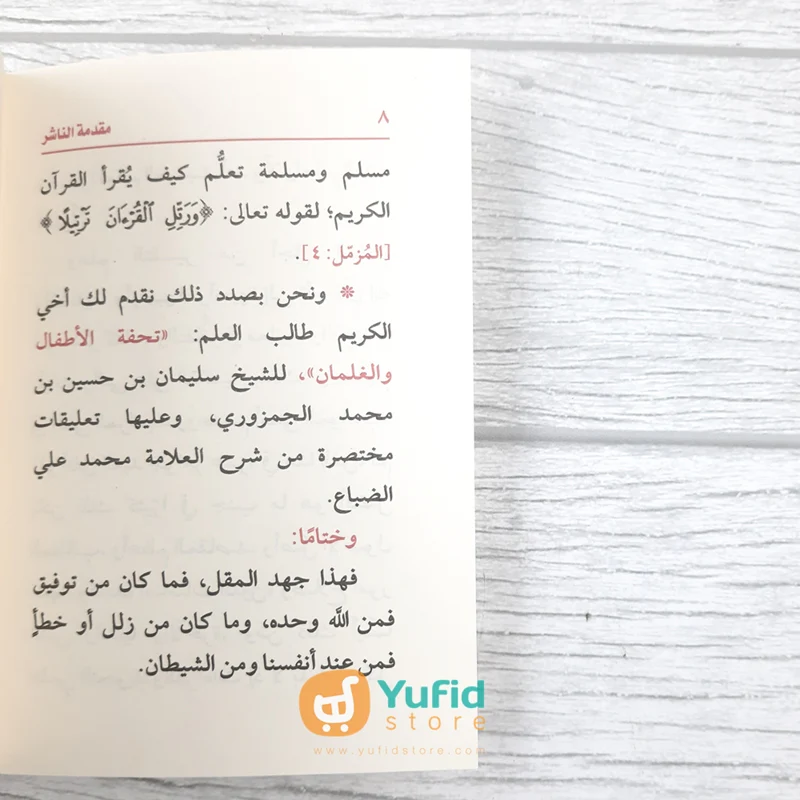 ٨
مقدمة الناشر
مسلم ومسلمة تعلُّم كيف يُقرأ القرآن
الكريم؛ لقوله تعالى: ﴿وَرَتِّلِ ٱلْقُرْءَانَ تَرْتِيلًا﴾
[المُزمّل: ٤].
❊ ونحن بصدد ذلك نقدم لك أخي
الكريم طالب العلم: «تحفة الأطفال
والغلمان»، للشيخ سليمان بن حسين بن
محمد الجمزوري، وعليها تعليقات
مختصرة من شرح العلامة محمد علي
الضباع.
وختامًا:
فهذا جهد المقل، فما كان من توفيق
فمن الله وحده، وما كان من زلل أو خطأٍ
فمن عند أنفسنا ومن الشيطان.
Yufid
store
www.yufidstore.com